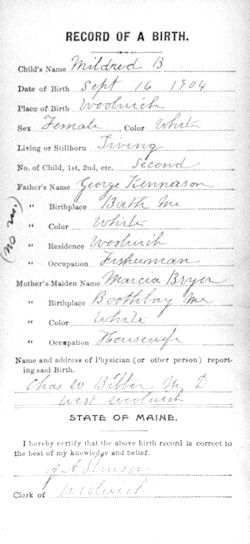 RECORD OF A BIRTH.
Child's Name Mildred B
Date of Birth Sept 16 1904
Place of Birth Woolwich
Sex Female Color White
Living or Stillborn Living
No. of Child, 1st, 2nd, etc. Second
Father's Name George
" Birthplace Bath Me
" Color White
" Residence Woolwich
" Occupation Fisherman
Mother's Maiden Name Marcia Bryer
" Birthplace Boothbay Me
" Color White
" Occupation Housewife
Name and address of Physician (or other person) report-
ing said Birth.
Chas W Bibber M D
West Woolwich
STATE OF MAINE.
I hereby certify that the above birth record is correct to
the best of my knowledge and belief.
Clerk of Woolwich